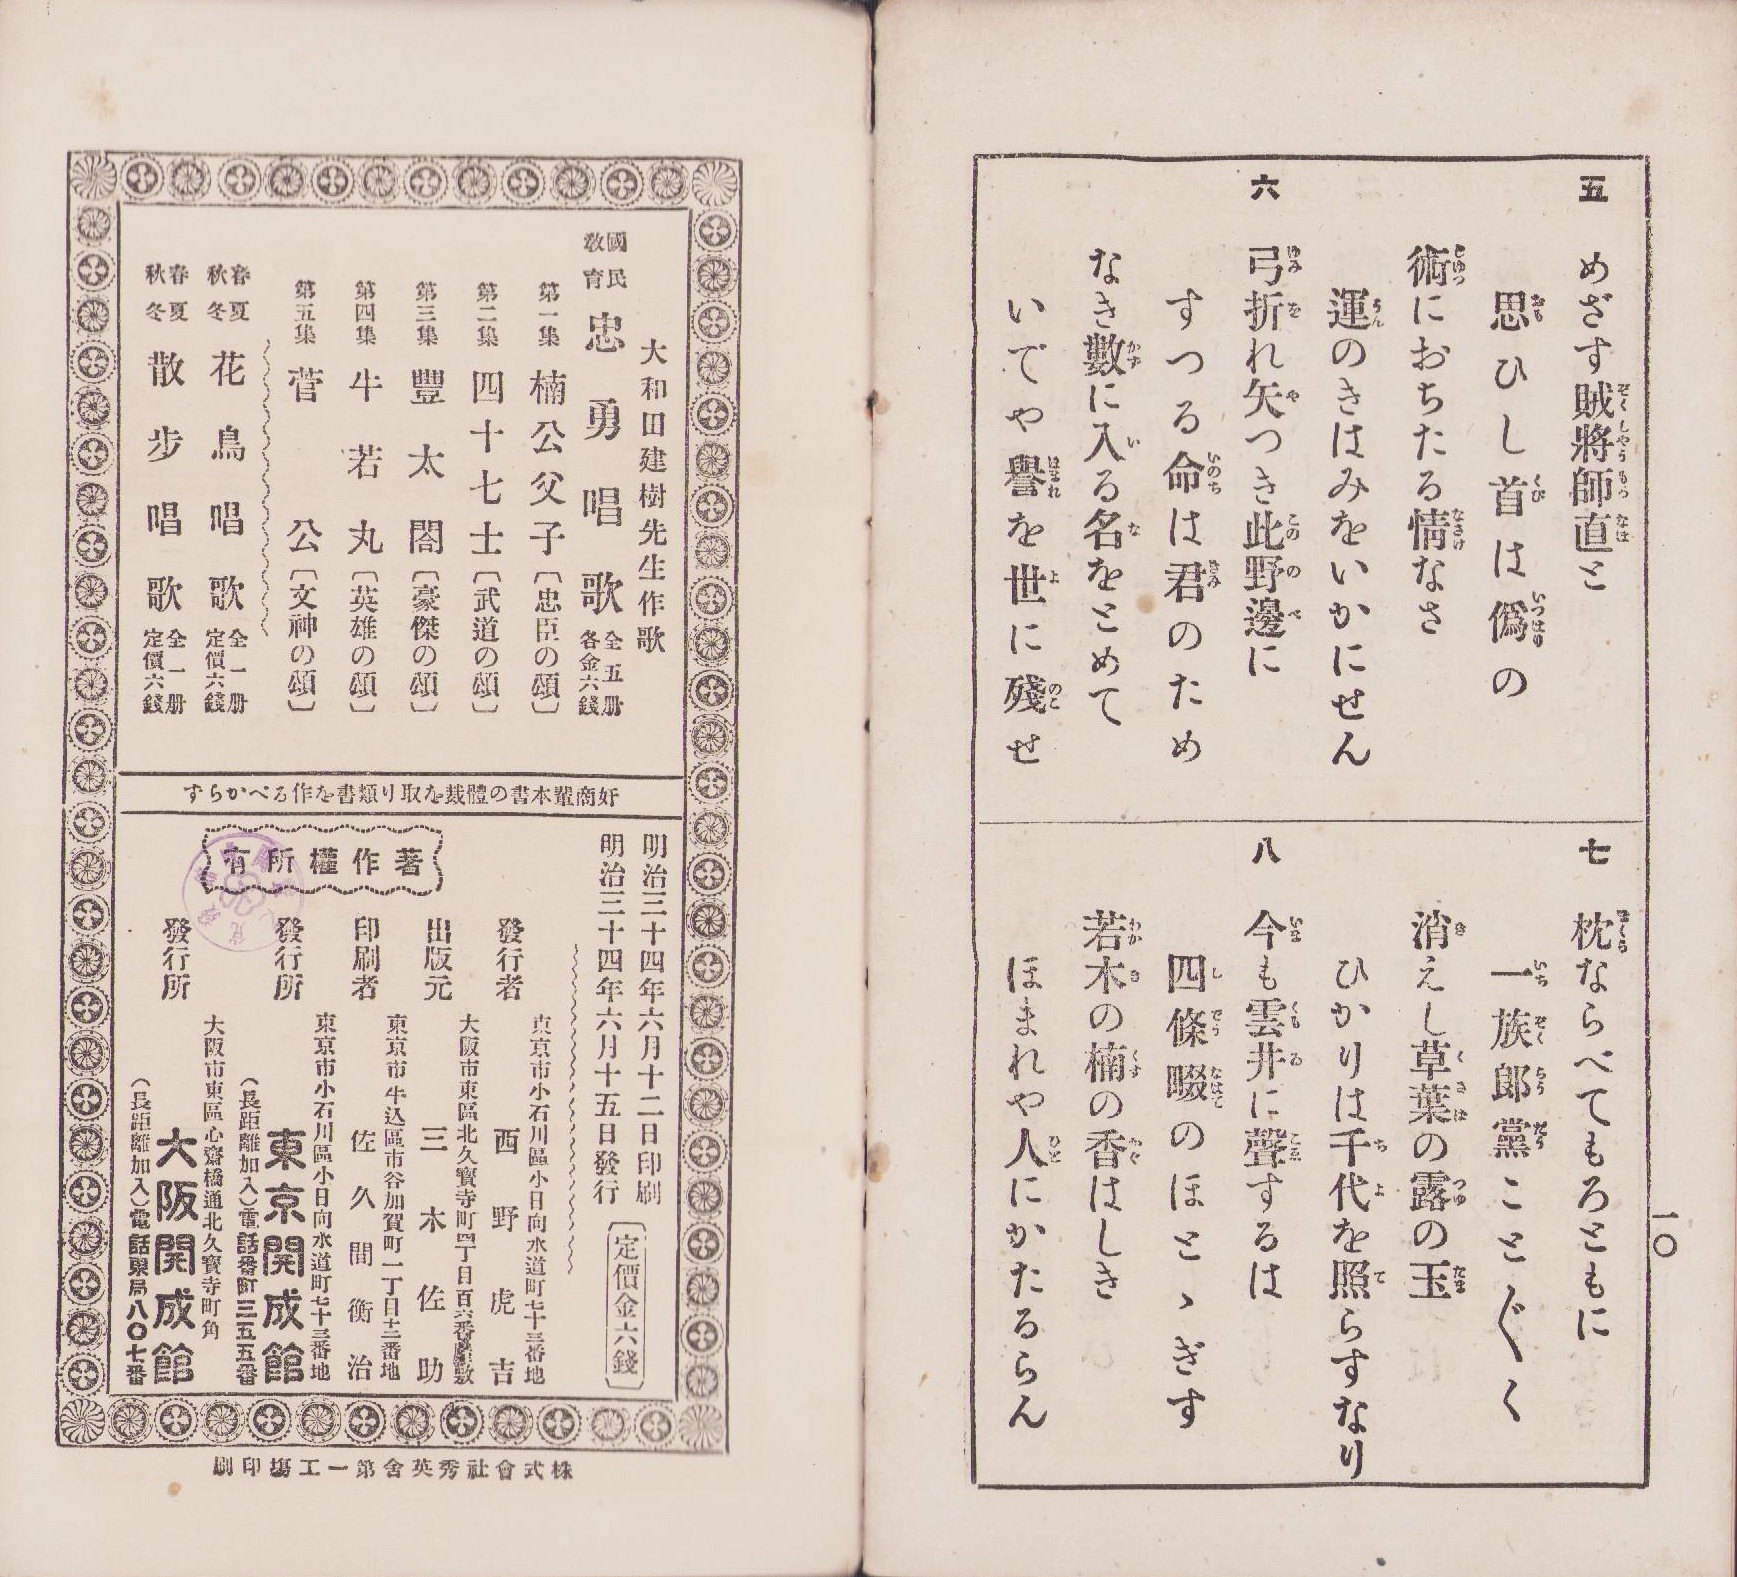 五
めざす賊將師直と
思ひし首は僞の
術におちたる情なさ
運のきはみをいかにせん
六
弓折れ矢つき此野邊に
すつる命は君のため
なき數に入る名をとめて
いでや譽を世に殘せ
七
枕ならべてもろともに
一族郎黨こと〴〵く
消えし草葉の露の玉
ひかりは千代を照らすなり
八
今も雲井に聲するは
四條畷のほとゝぎす
若木の楠の香はしき
ほまれや人にかたるらん
一〇
大和田建樹先生作歌
國民敎育 忠勇唱歌 全五册 各金六錢
第一集 楠公父子〔忠臣の頌〕
第二集 四十七士〔武道の頌〕
第三集 豐太閤〔豪傑の頌〕
第四集 牛若丸〔英雄の頌〕
第五集 菅公〔文神の頌〕
春夏秋冬 花鳥唱歌 全一册 定價六錢
春夏秋冬 散步唱歌 全一册 定價六錢
奸商輩本書の體裁を取り類書を作るべからず
明治三十四年六月十二日印刷
明治三十四年六月十五日發行
〔定價金六錢〕
著作權所有
東京市小石川區小日向水道町七十三番地
發行者 西野虎吉
大阪市東區北久寶寺町四丁目百六番屋敷
出版元 三木佐助
東京市牛込區市谷加賀町一丁目十二番地
印刷者 佐久間衡治
東京市小石川區小日向水道町七十三番地
發行所 東京開成館
(長距離加入)電話番町三五五番
大阪市東區心齋橋通北久寶寺町角
發行所 大阪開成館
(長距離加入)電話東局八〇七番
株式會社秀英舍第一工塲印刷